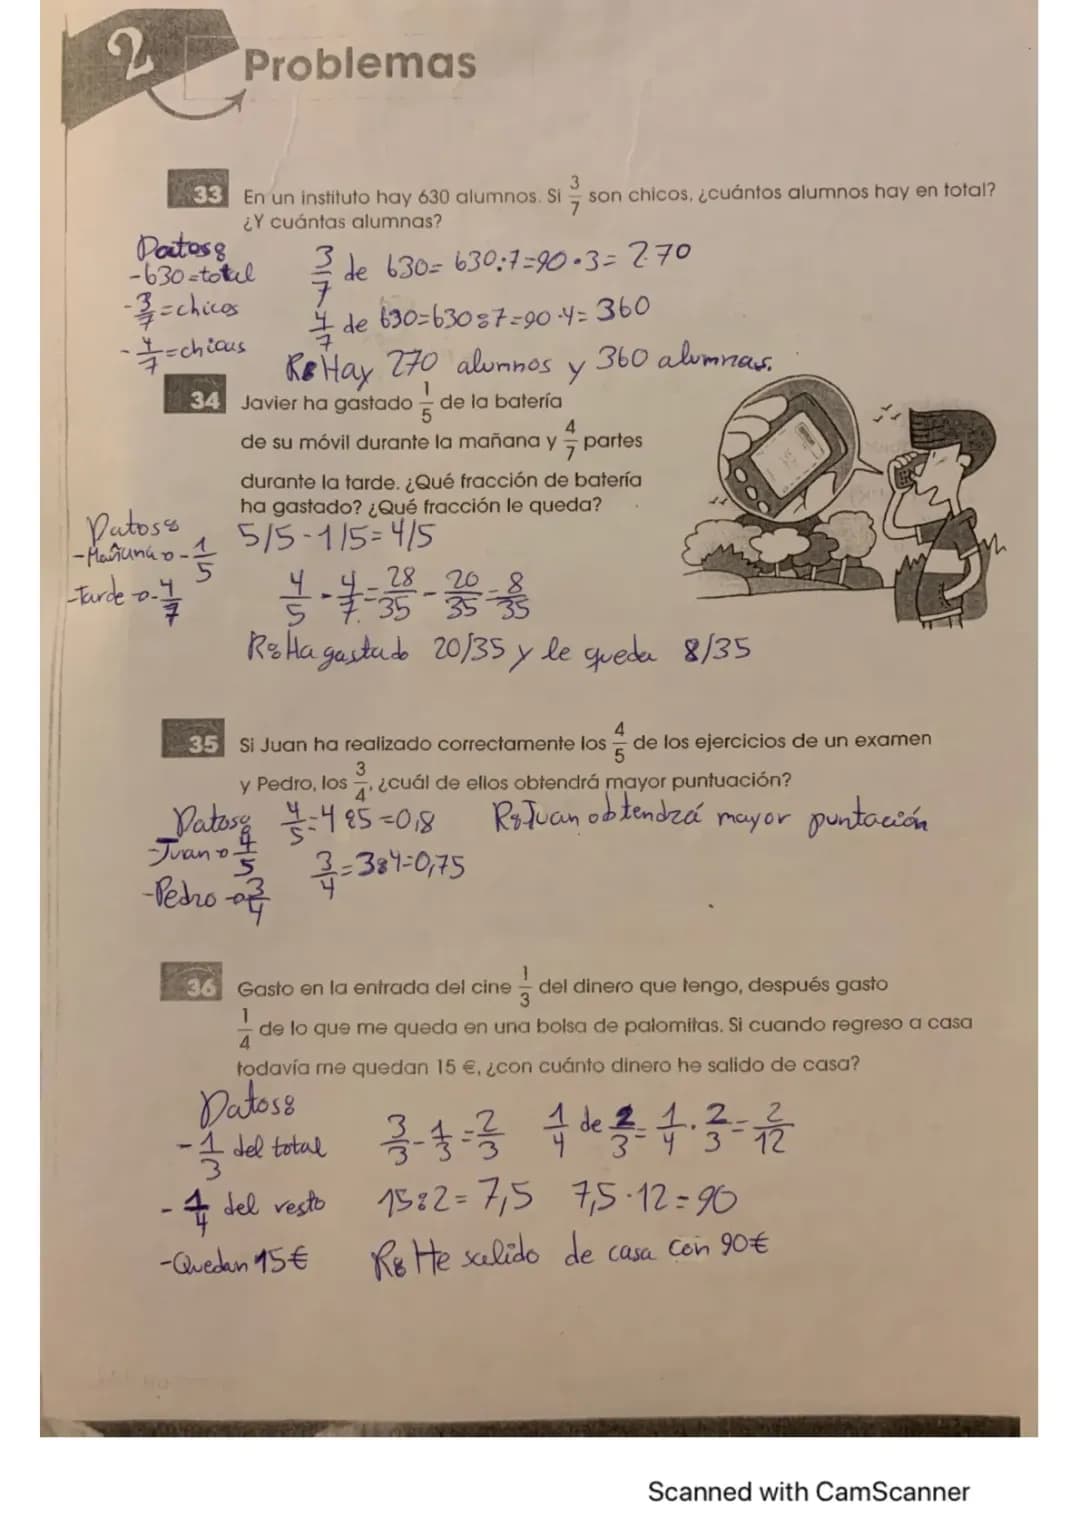 2 Problemas
33 En un instituto hay 630 alumnos. Si 3/7 son chicos, ¿cuántos alumnos hay en total?
¿Y cuántas alumnas?
Datos:
-630=total
-3/7=chicos
-4/7=chicas
3/7 de 630= 630:7=90·3= 270
4/7 de 630=630:7=90·4= 360
R: Hay 270 alumnos y 360 alumnas.
34 Javier ha gastado 1/5 de la batería
de su móvil durante la mañana y 4/7 partes
durante la tarde. ¿Qué fracción de batería
ha gastado? ¿Qué fracción le queda?
Datos:
-Mañana → 1/5
-Tarde → 4/7
5/5-1/5=4/5
4/5-4/7=28/35-20/35=8/35
R: Ha gastado 20/35 y le queda 8/35
35 Si Juan ha realizado correctamente los 4/5 de los ejercicios de un examen
y Pedro, los 3/4, ¿cuál de ellos obtendrá mayor puntuación?
Datos:
-Juan → 4/5
-Pedro → 3/4
4/5=4:5=0,8
3/4=3:4=0,75
R: Juan obtendrá mayor puntación
36 Gasto en la entrada del cine 1/3 del dinero que tengo, después gasto
1/4 de lo que me queda en una bolsa de palomitas. Si cuando regreso a casa
todavía me quedan 15 €, ¿con cuánto dinero he salido de casa?
Datos:
-1/3 del total
-1/4 del resto
-Quedan 15€
3/3-1/3=2/3 1/4 de 2/3=1/4·2/3=2/12
15:2=7,5 7,5·12=90
R: He salido de casa con 90€
Scanned with CamScanner